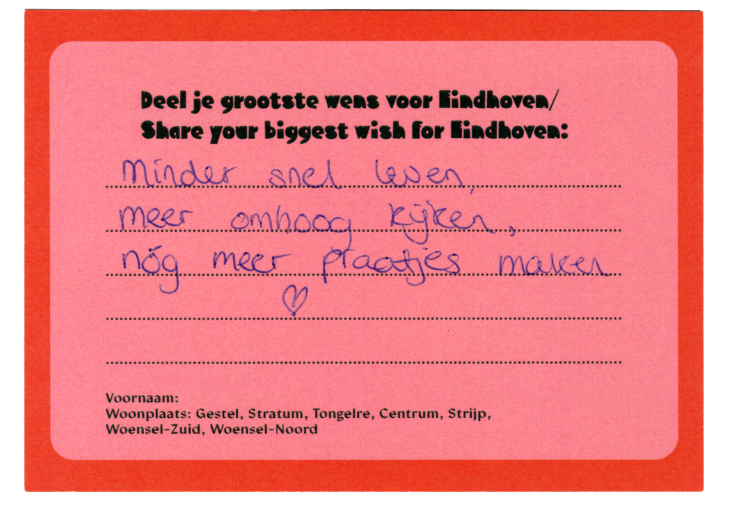 Deel je grootste wens voor Eindhoven/
Share your biggest wish for Eindhoven:
Minder snel leven,
meer omhoog kijken,
nóg meer praatjes maken
♡
Voornaam:
Woonplaats: Gestel, Stratum, Tongelre, Centrum, Strijp,
Woensel-Zuid, Woensel-Noord